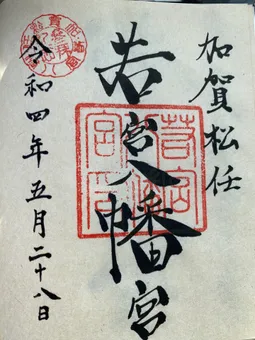 加賀松任
若宮八幡宮
令和四年五月二十八日